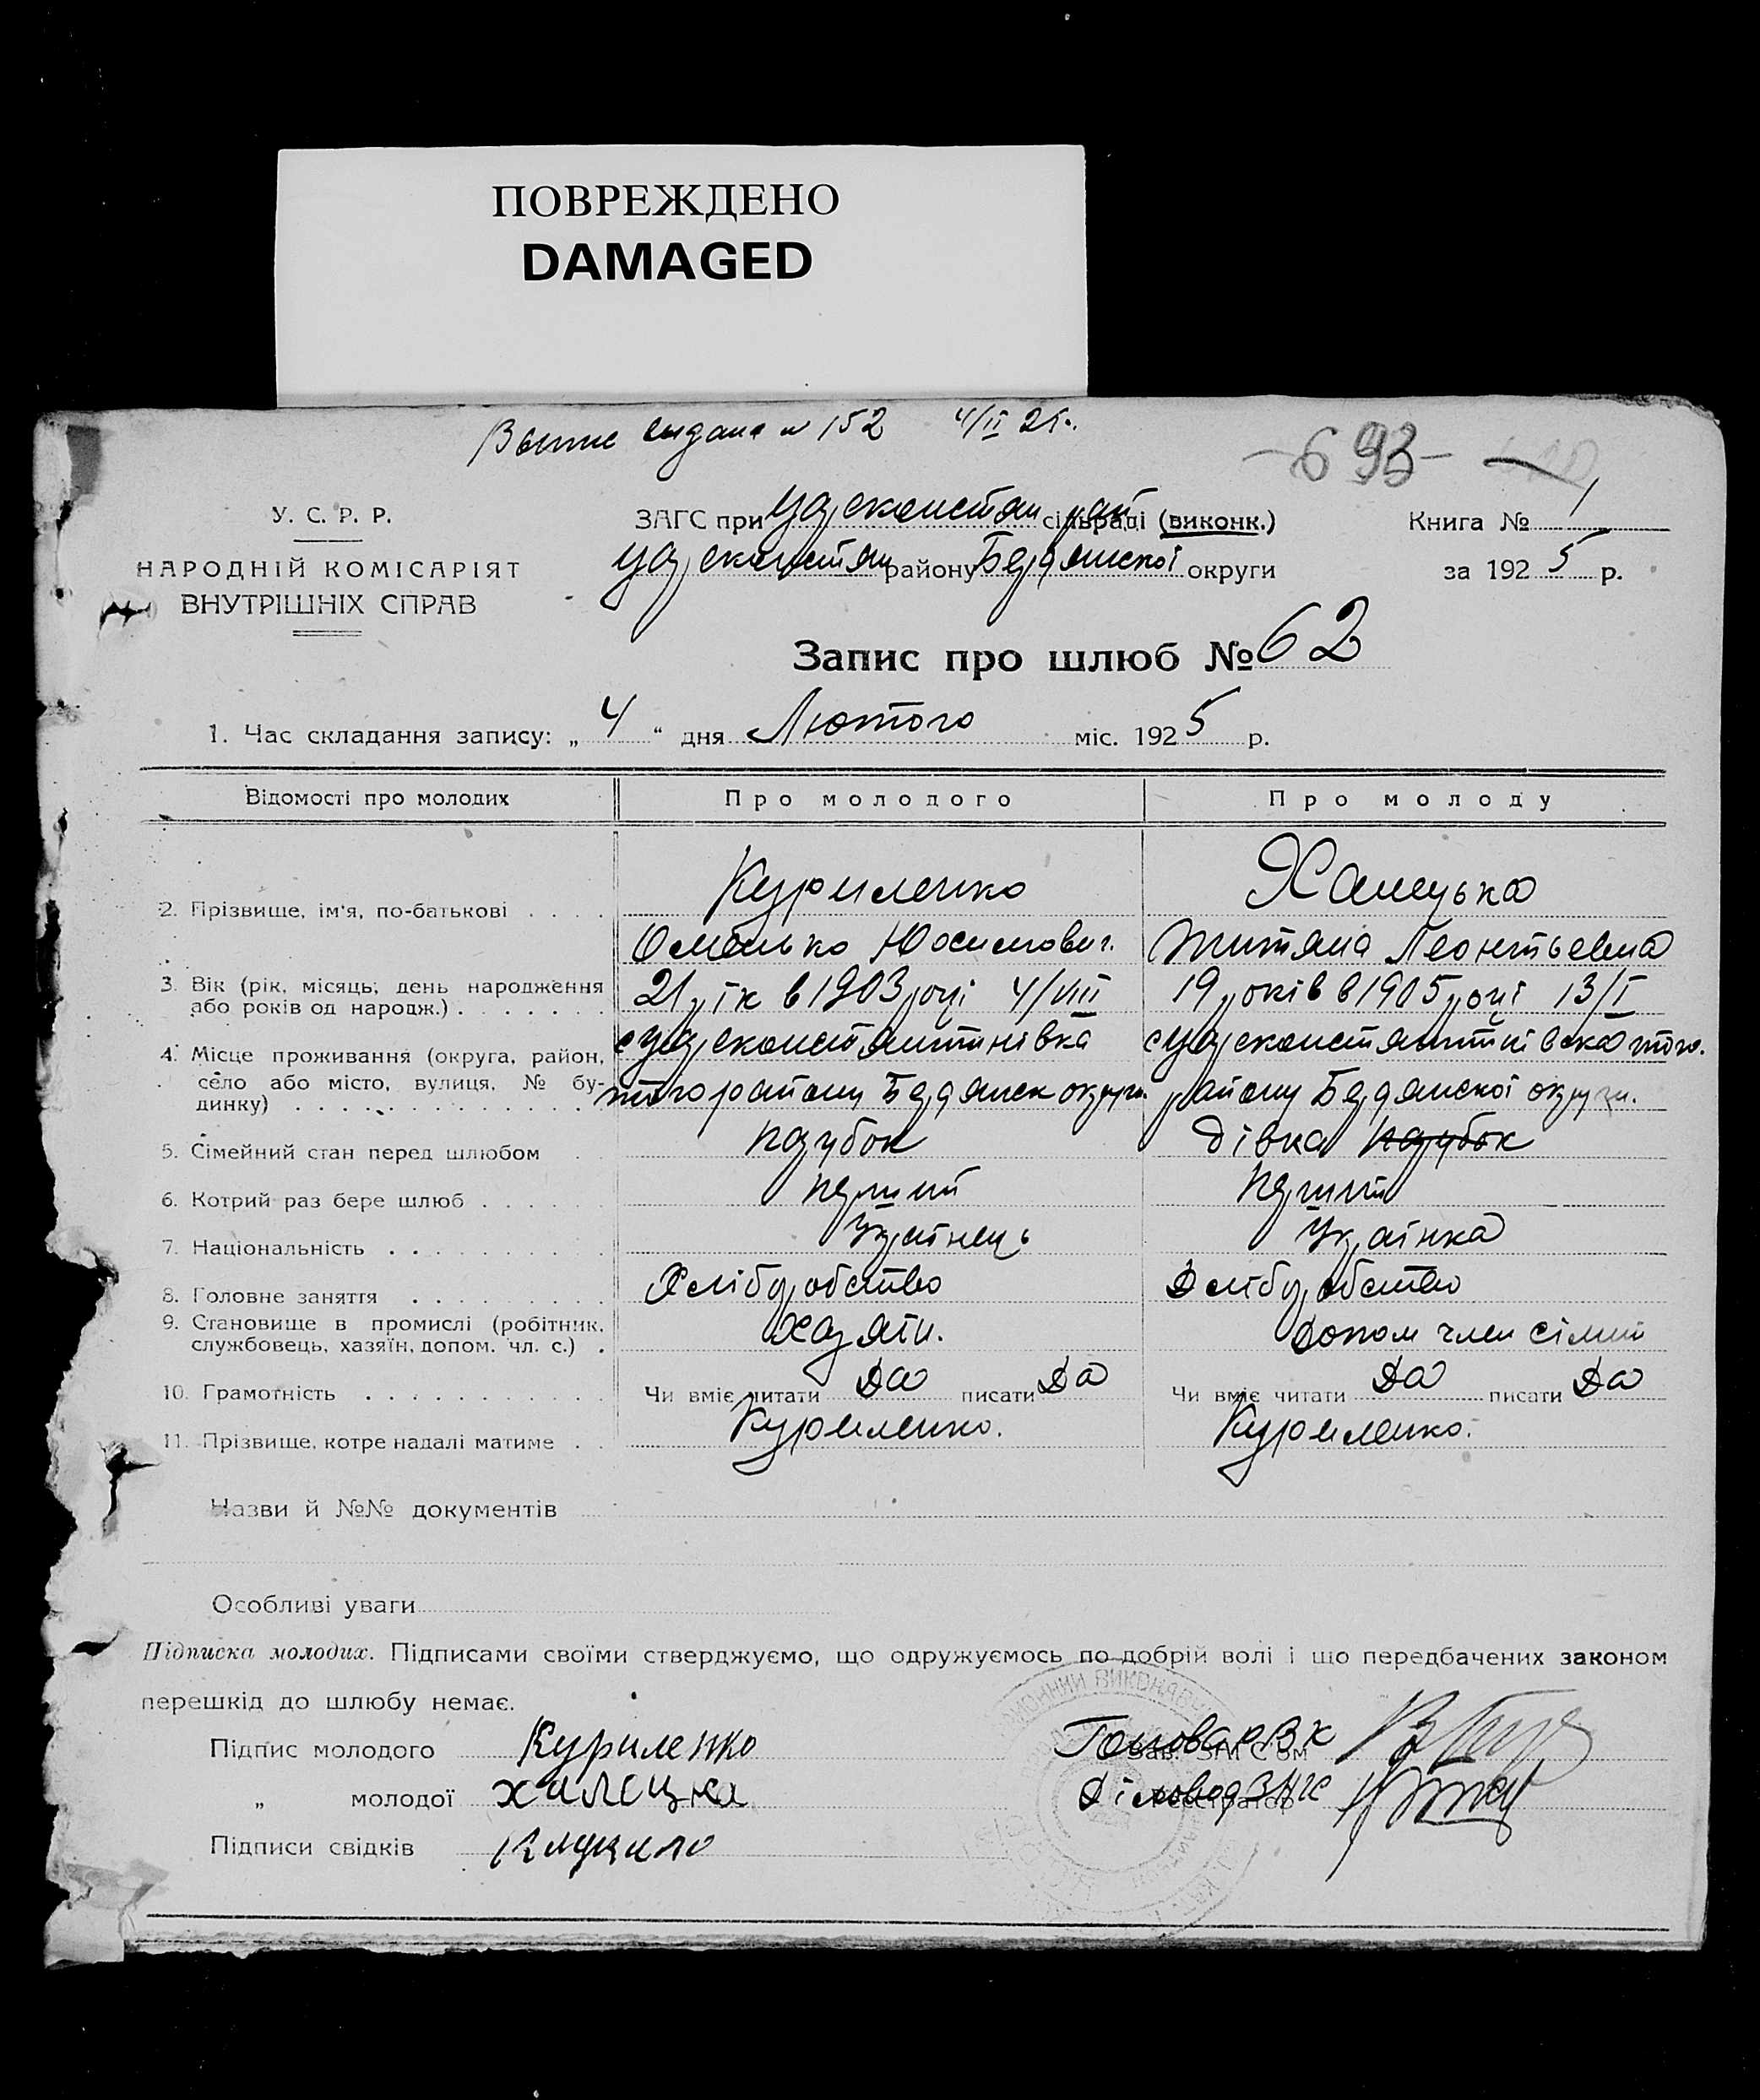 ПОВРЕЖДЕНО
DAMAGED
выдана № 152 4/II 25.
-693-
У. С. Р. Р.
НАРОДНІЙ КОМІСАРІЯТ
ВНУТРІШНІХ СПРАВ
ЗАГС при Царсконстан рай сільраді (виконк.)
Царсконстан району Бердянскої округи
Книга № 1
за 1925 р.
Запис про шлюб № 62
1. Час складання запису: „ 4 “ дня Лютого міс. 1925 р.
Відомості про молодих Про молодого Про молоду
2. Прізвище, ім'я, по-батькові Куриленко Халецька
Омелько Юхимович. Титяна Леонтьевна
3. Вік (рік, місяць, день народження або років од народж.) 21 рік в 1903 році 4/VIII 19 років в 1905 році 13/I
4. Місце проживання (округа, район, село або місто, вулиця, № будинку) с Царсконстантинівка с Царсконстантинівка того.
того району Бердянск округи. району Бердянскої округи.
5. Сімейний стан перед шлюбом парубок дівка парубок
6. Котрий раз бере шлюб перший перший
7. Національність Українець Українка
8. Головне заняття Хліборобство Хліборобство
9. Становище в промислі (робітник, службовець, хазяїн, допом. чл. с.) Хазяїн. Допом член сімьї
10. Грамотність Чи вміє читати Да писати Да Чи вміє читати Да писати Да
11. Прізвище, котре надалі матиме Куриленко. Куриленко.
Назви й №№ документів
Особливі уваги
Підписка молодих. Підписами своїми стверджуємо, що одружуємось по добрій волі і що передбачених законом
перешкід до шлюбу немає.
Підпис молодого Куриленко Голова РВК
Зав. ЗАГС'ом
„ молодої халецка Діловод ЗАГС
Реєстратор
Підписи свідків